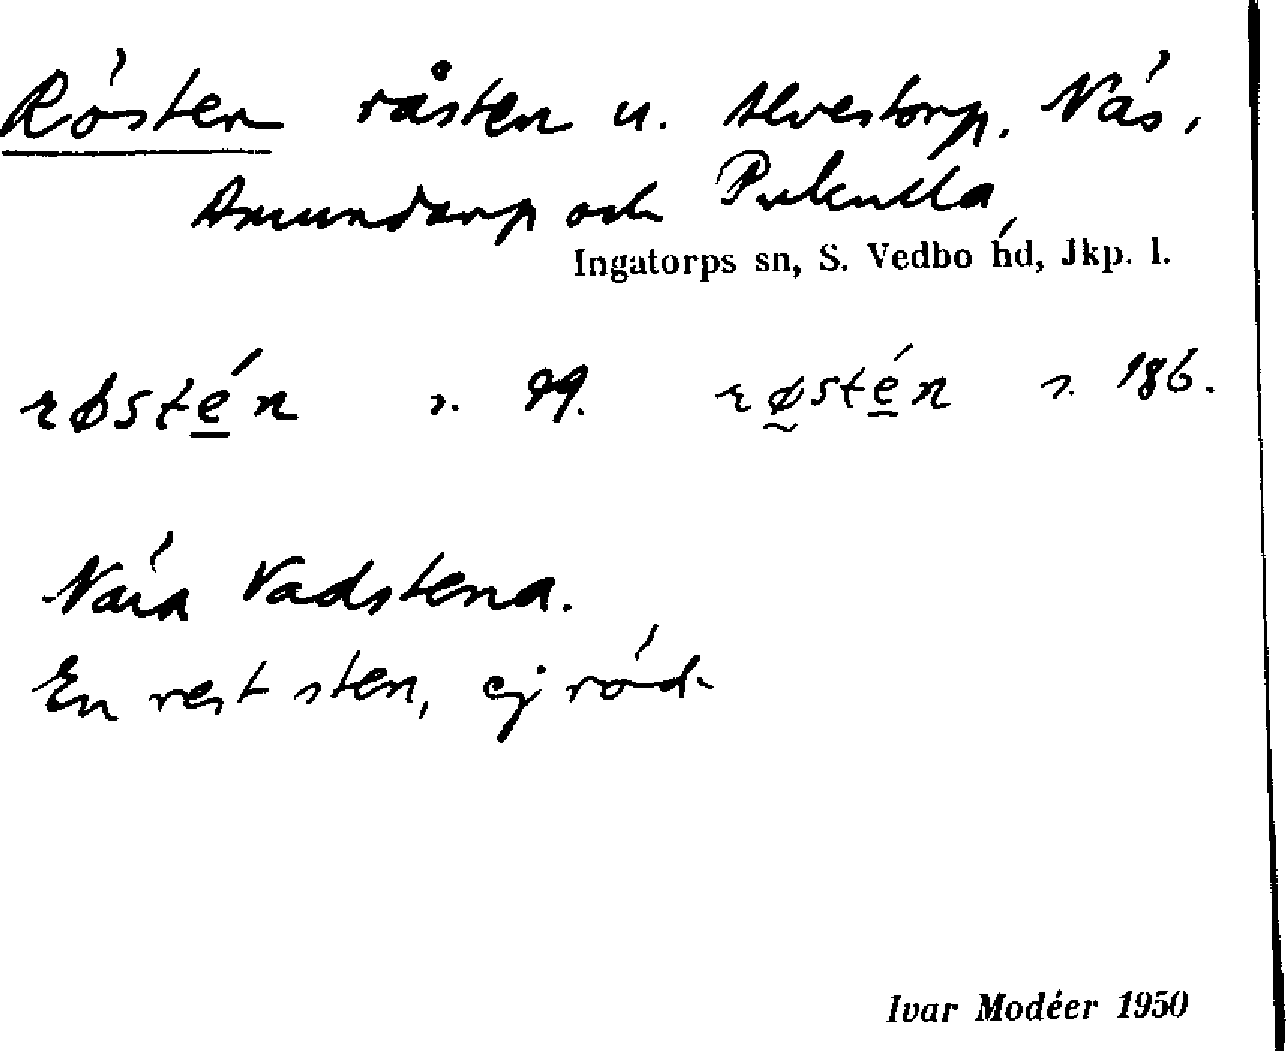 Rösten råsten u. Alvestorp. Näs,
Amundarp och Pukulla,
Ingatorps sn, S. Vedbo hd, Jkp. l.
røstén s. 99. røstén s. 186.
Nära Vadstena.
En rest sten, ej röd.
Ivar Modéer 1950